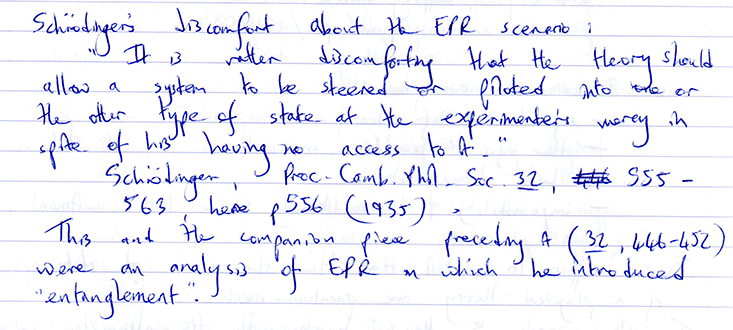 Schrödinger's discomfort about the EPR scenario:
"It is rather discomforting that the theory should
allow a system to be steered or piloted into one or
the other type of state at the experimenter's mercy in
spite of his having no access to it."
Schrödinger, Proc. Camb. Phil. Soc. 32, 555-
563, here p556 (1935).
This and the companion piece preceding it (32, 446-452)
were an analysis of EPR in which he introduced
"entanglement".